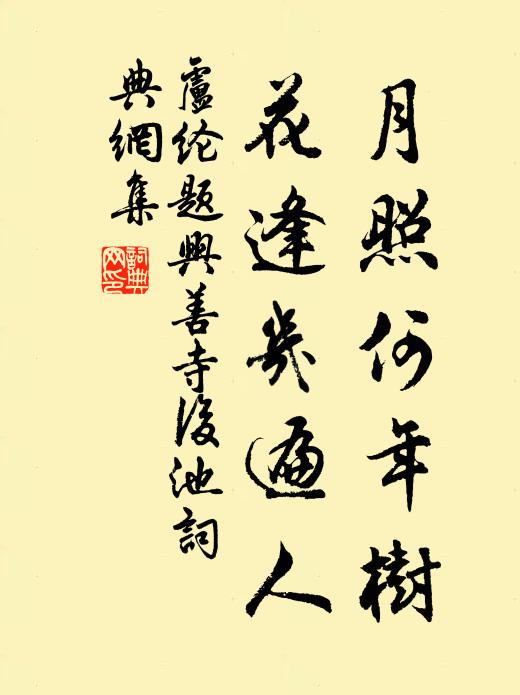 月照何年樹
花逢幾遍人
盧綸題興善寺後池詞
典網集
詞典
网印